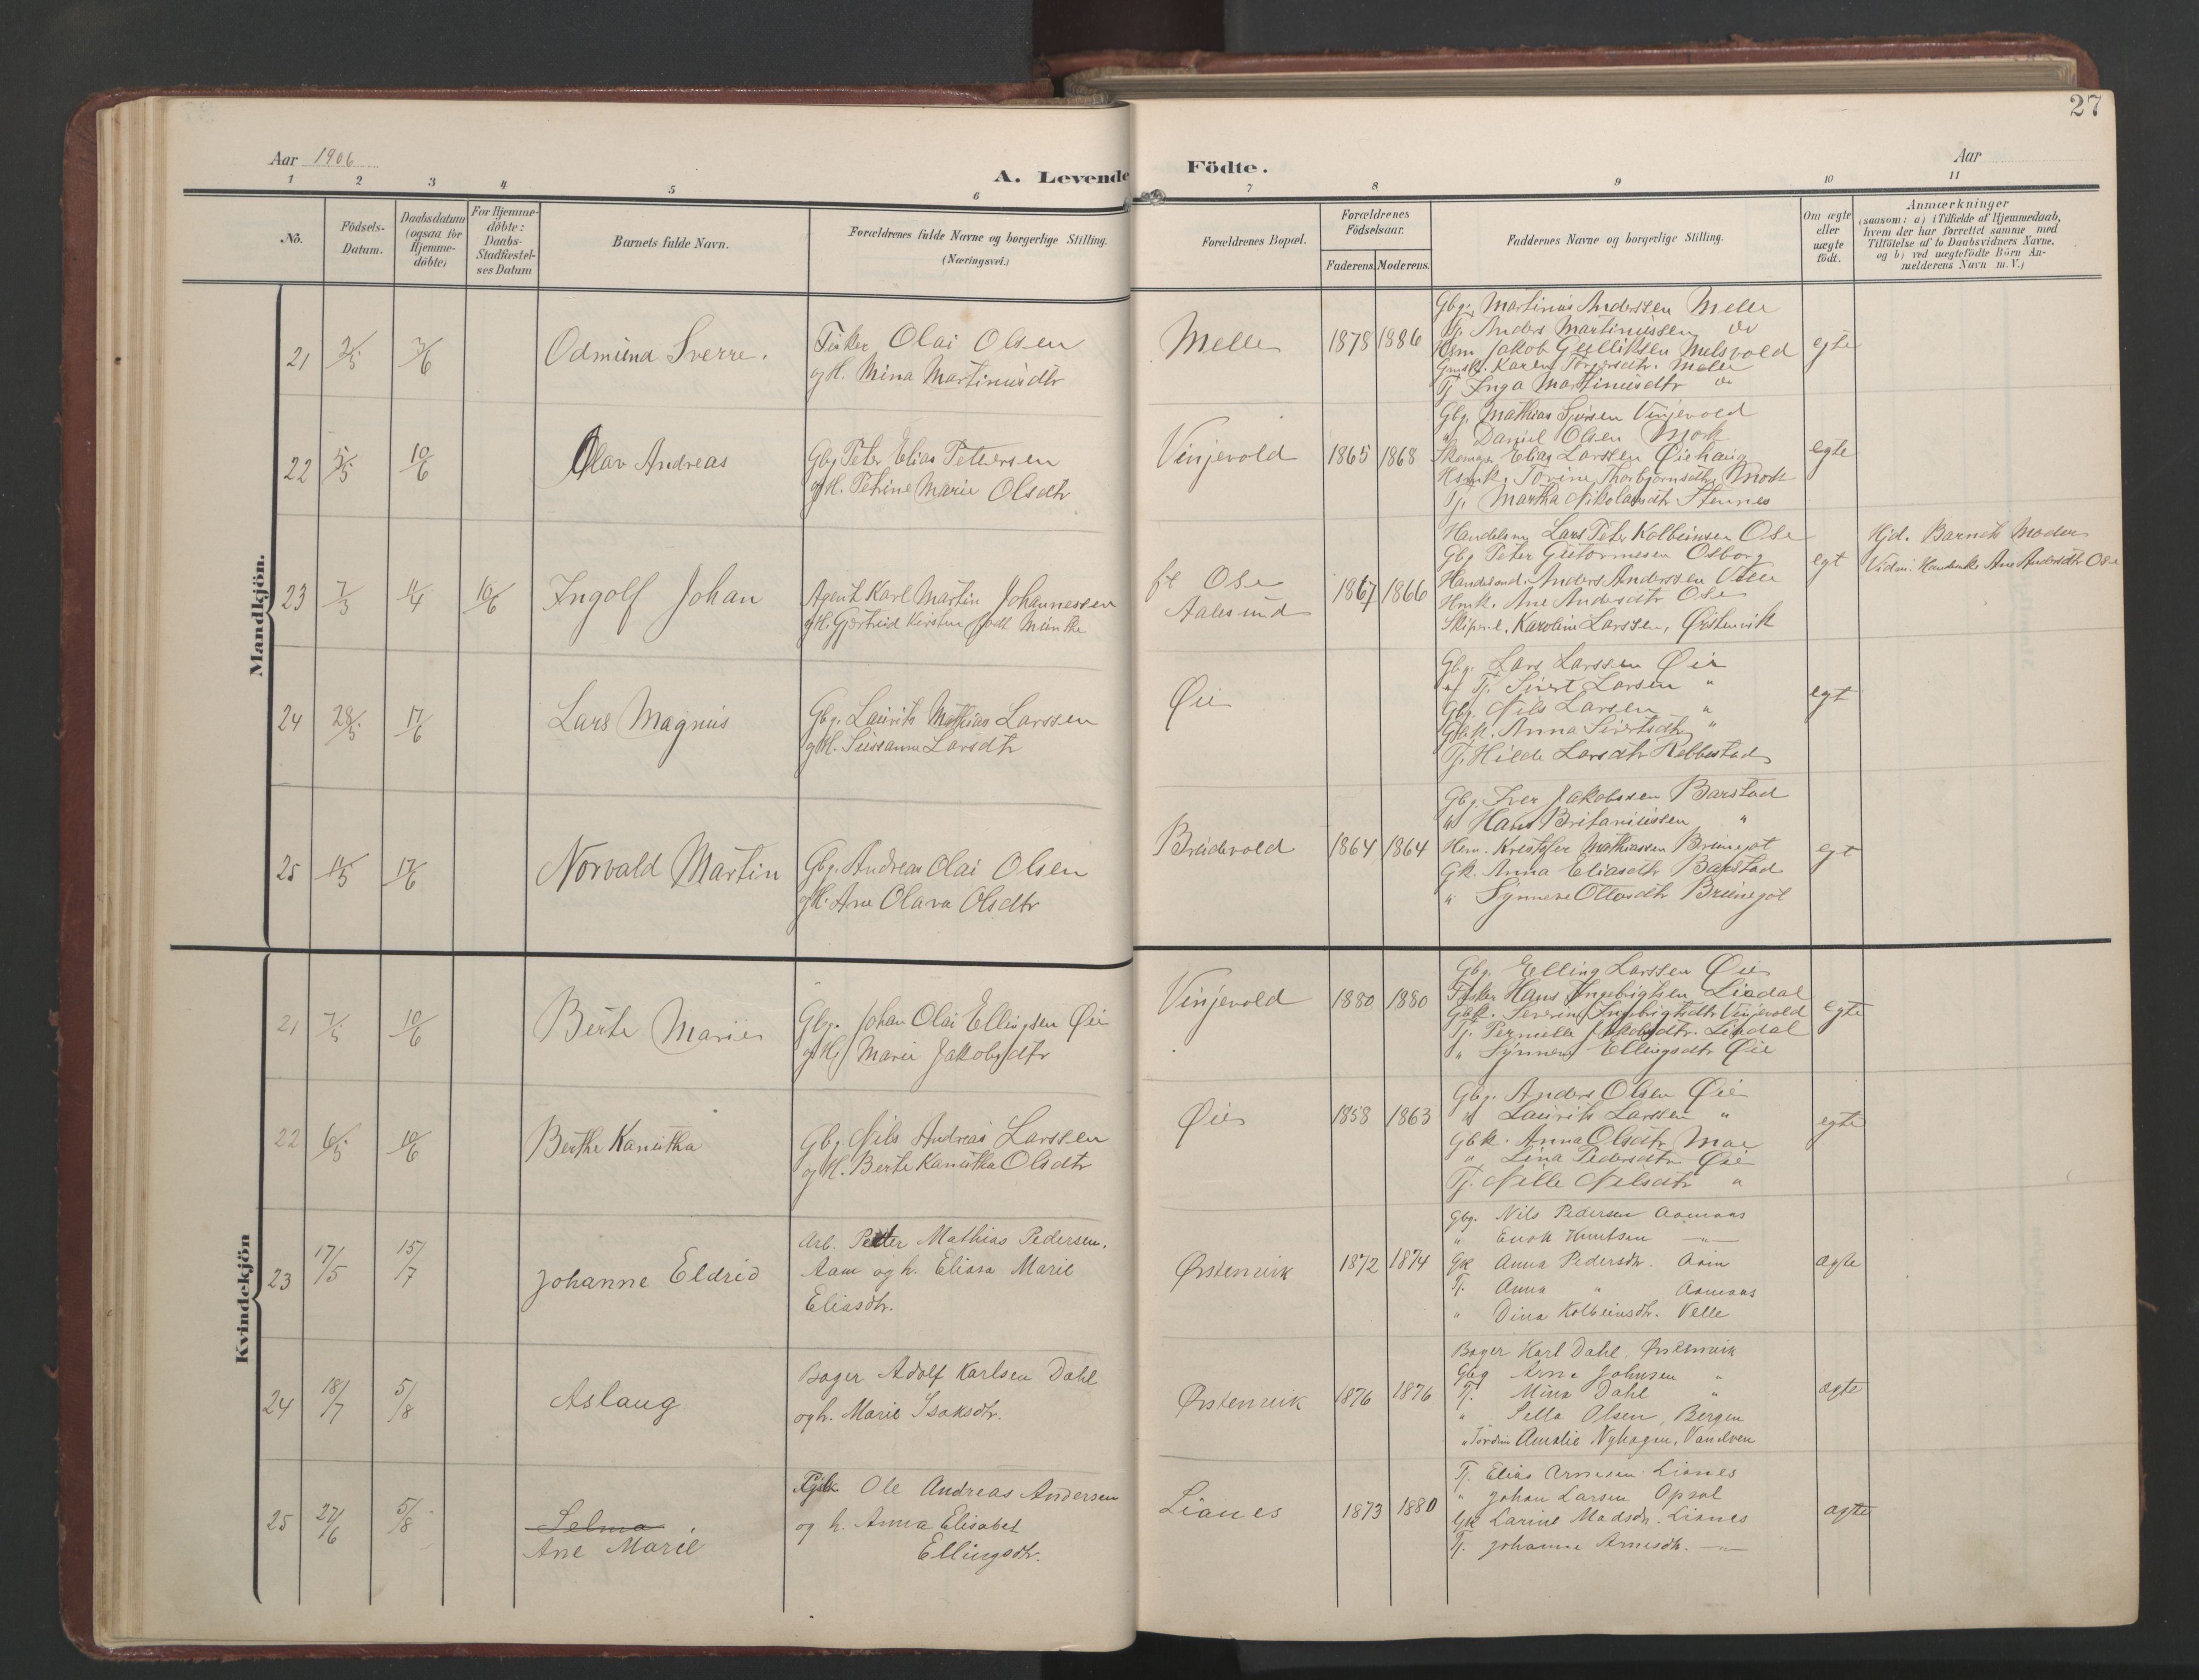 27
Aar 1906
A. Levende Födte.
Aar
1 2 3 4 5 6 7 8 9 10 11
No.
Födsels-
Datum.
Daabsdatum
(ogsaa for
Hjemme-
döbte)
For Hjemme-
döbte:
Daabs-
Stadfæstel-
ses Datum
Barnets fulde Navn.
Forældrenes fulde Navne og borgerlige Stilling.
(Næringsvei.)
Forældrenes Bopæl.
Forældrenes
Födselsaar.
Faderens. Moderens.
Faddernes Navne og borgerlige Stilling.
Om ægte
eller
uægte
födt.
Anmærkninger
(saasom: a) i Tilfælde af Hjemmedaab,
hvem der har forrettet samme, med
Tilföielse af to Daabsvidners Navne,
og b) ved uægtefödte Börn An-
melderens Navn m. V.)
Mandkjön.
21 2/5 3/6
Odmund Sverre.
Fisker Olai Olsen
og H. Mina Martinusdtr
Melle
1878 1886
Gbgr. Martinus Anderssen Melle
Tj. Anders Martinussen do
Hsm Jakob Melsvold
Karen Melle
Tj Inga Martinusdtr do
egte
22 5/5 10/6
Olav Andreas
Gbg Peter Elias Petersen
og H. Petrine Marie Olsdtr
Vinjevold
1865 1868
Gbg. Mathias Vinjevold
" Daniel Olsen Mork
Elias Larssen Øiehaug
Torine Thorbjørnsdtr Mork
Tj. Martha Nikolaisdtr Steinnes
egte
23 7/3 11/4 10/6
Ingolf Johan
Agent Karl Martin Johannessen
og H. Gjertrud Kirstine født Munthe
ft Ose
Aalesund
1867 1866
Handelsm Lars Peter Kolbeinsen Ose
Gbg Peter Guttormesen Osborg
Anders Anderssen
Hmk. Ane Andersdtr Ose
Karoline Larssen, Ørstenvik
egt
Hjd. Barnets Moder
Vidni: Ane Andersdtr Ose
24 28/5 17/6
Lars Magnus
Gbg. Laurits Mathias Larssen
og H. Sussanne Larsdtr
Øie
Gbg. Lars Larssen Øie
Tj. Sivert Larsen "
Gbg. Nils Larsen "
Gbk. Anna Sivertsdtr "
Tj. Hilda Larsdtr Rebbestad
egt
25 11/5 17/6
Norvald Martin
Gbg. Andreas Olai Olsen
og H. Ane Olava Olsdtr
Breidevold
1864 1864
Gbg. Iver Jakobssen Barstad
" Hans Britaniussen "
Hsm. Krestofer Mathiassen Bruneget
Gk. Anna Eliasdtr Barstad
" Synneve Bruneget
egt
Kvindekjön
21 7/5 10/6
Berte Marie
Gbg. Johan Olai Ellingsen Øie
og H. Marie Jakobsdtr
Vinjevold
1880 1880
Gbg. Elling Larssen Øie
Fisker Hans Ingebrigtsen Liadal
Gbk. Severine Ingebrigtsdtr Vinjevold
Tj. Pernille Jakobsdtr. Liadal
" Synneve Ellingsdtr Øie
egte
22 6/5 10/6
Berthe Kanutha
Gbg Nils Andreas Larssen
og H. Berte Kanutha Olsdtr
Øie
1858 1863
Gbg. Anders Olsen Øie
" Laurits Larssen "
Gbk. Anna Olsdtr Moe
" Lina Pedersdtr Øie
Tj. Nille Nilsdtr "
egte
23 17/5 15/7
Johanne Eldrid
Arb. Petter Mathias Pedersen.
Aam og h. Eliasa Marie
Eliasdtr.
Ørstenvik
1872 1874
Gbg. Nils Pedersen Aamaas
" Enok Knutsen —"—
Gk Anna Pedersdtr. Aam
Tj. Anna " Aamaas
" Dina Kolbeinsdtr. Velle
ægte
24 18/7 5/8
Aslaug
Bager Adolf Karlsen Dahl
og h. Marie Isaksdtr.
Ørstenvik
1876 1876
Bager Karl Dahl, Ørstenvik
Gbg Arne Johnsen "
Tj. Mina Dahl "
" Sella Olsen, Bergen
" Amalie Nyhagen, Vandven
ægte
25 27/6 5/8
Selma
Ane Marie
Ole Andreas Andersen
og h. Anna Elisabet
Ellingsdtr.
Lianes
1873 1880
Tj. Elias Arnesen Lianes
" Johan Larsen Opsal
Gk Larine Madsdtr. Lianes
Tj. Johanne Arnesdtr. —"—
ægte